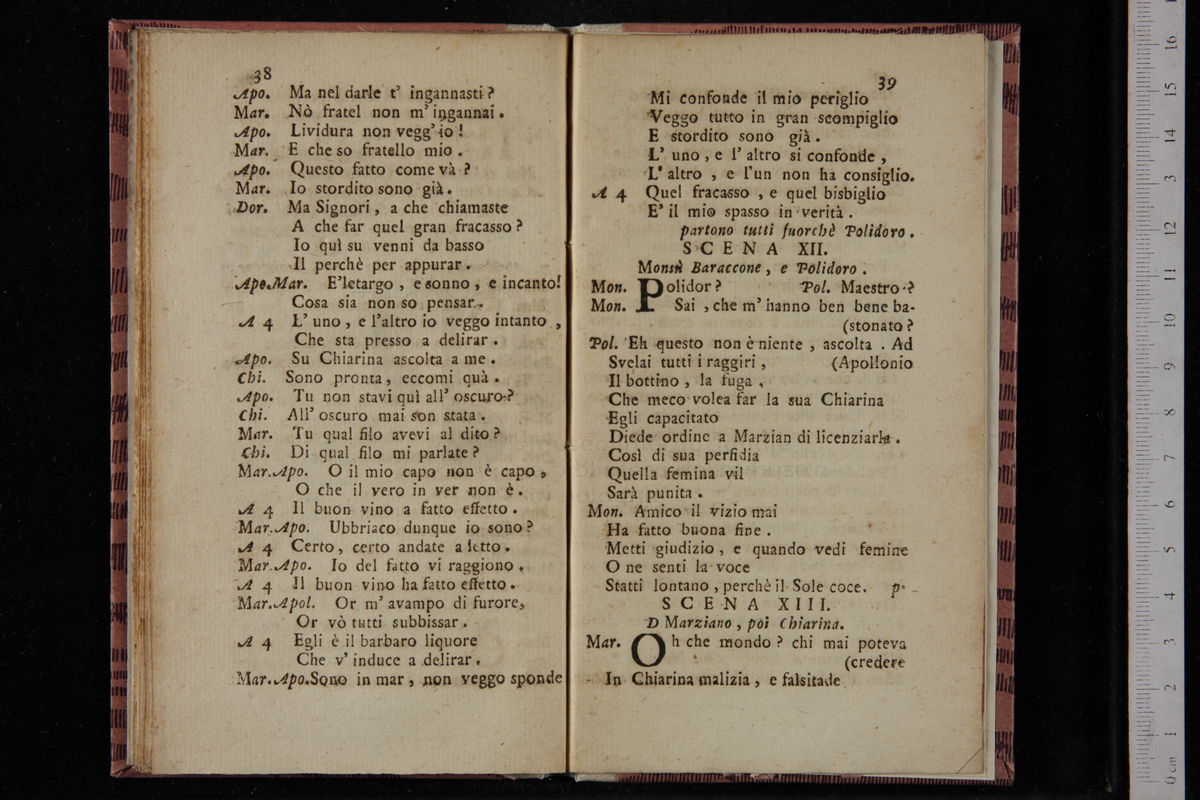 38
Apo. Ma nel darle t' ingannasti ?
Mar. Nò fratel non m' ingannai .
Apo. Lividura non vegg' io !
Mar. E che so fratello mio .
Apo. Questo fatto come và ?
Mar. Io stordito sono già .
Dor. Ma Signori , a che chiamaste
A che far quel gran fracasso ?
Io quì su venni da basso
Il perchè per appurar .
Apo.Mar. E'letargo , e sonno , e incanto!
Cosa sia non so pensar .
A 4 L' uno , e l'altro io veggo intanto ,
Che sta presso a delirar .
Apo. Su Chiarina ascolta a me .
Chi. Sono pronta , eccomi quà .
Apo. Tu non stavi quì all' oscuro ?
Chi. All' oscuro mai son stata .
Mar. Tu qual filo avevi al dito ?
Chi. Di qual filo mi parlate ?
Mar.Apo. O il mio capo non è capo ,
O che il vero in ver non è .
A 4 Il buon vino a fatto effetto .
Mar.Apo. Ubbriaco dunque io sono ?
A 4 Certo , certo andate a letto .
Mar.Apo. Io del fatto vi raggiono .
A 4 Il buon vino ha fatto effetto .
Mar.Apol. Or m' avampo di furore ,
Or vò tutti subbissar .
A 4 Egli è il barbaro liquore
Che v' induce a delirar .
Mar.Apo.Sono in mar , non veggo sponde
39
Mi confonde il mio periglio
Veggo tutto in gran scompiglio
E stordito sono già .
L' uno , e l' altro si confonde ,
L' altro , e l'un non ha consiglio.
A 4 Quel fracasso , e quel bisbiglio
E' il mio spasso in verità .
partono tutti fuorchè Polidoro .
SCENA XII.
Monsù Baraccone , e Polidoro .
Mon. Polidor ? Pol. Maestro ?
Mon. Sai , che m' hanno ben bene ba-
(stonato ?
Pol. Eh questo non è niente , ascolta . Ad
Svelai tutti i raggiri , (Apollonio
Il bottino , la fuga ,
Che meco volea far la sua Chiarina
Egli capacitato
Diede ordine a Marzian di licenziarla .
Così di sua perfidia
Quella femina vil
Sarà punita .
Mon. Amico il vizio mai
Ha fatto buona fine .
Metti giudizio , e quando vedi femine
O ne senti la voce
Statti lontano , perchè il Sole coce. p.
SCENA XIII.
D Marziano , poi Chiarina.
Mar. Oh che mondo ? chi mai poteva
(credere
In Chiarina malizia , e falsitade
0 cm 1 2 3 4 5 6 7 8 9 10 11 12 13 14 15 16